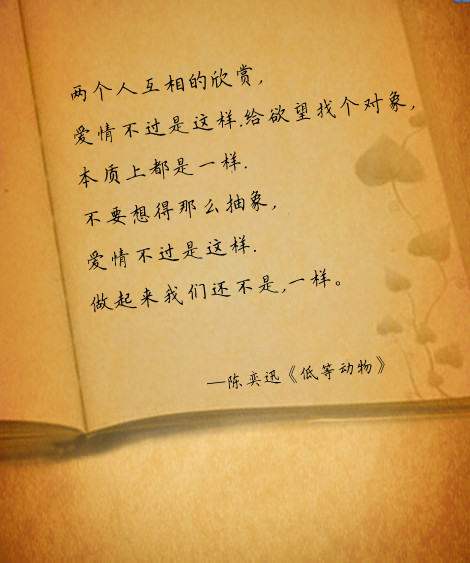 两个人互相的欣赏，
爱情不过是这样.给欲望找个对象，
本质上都是一样.
不要想得那么抽象，
爱情不过是这样.
做起来我们还不是,一样。
—陈奕迅《低等动物》